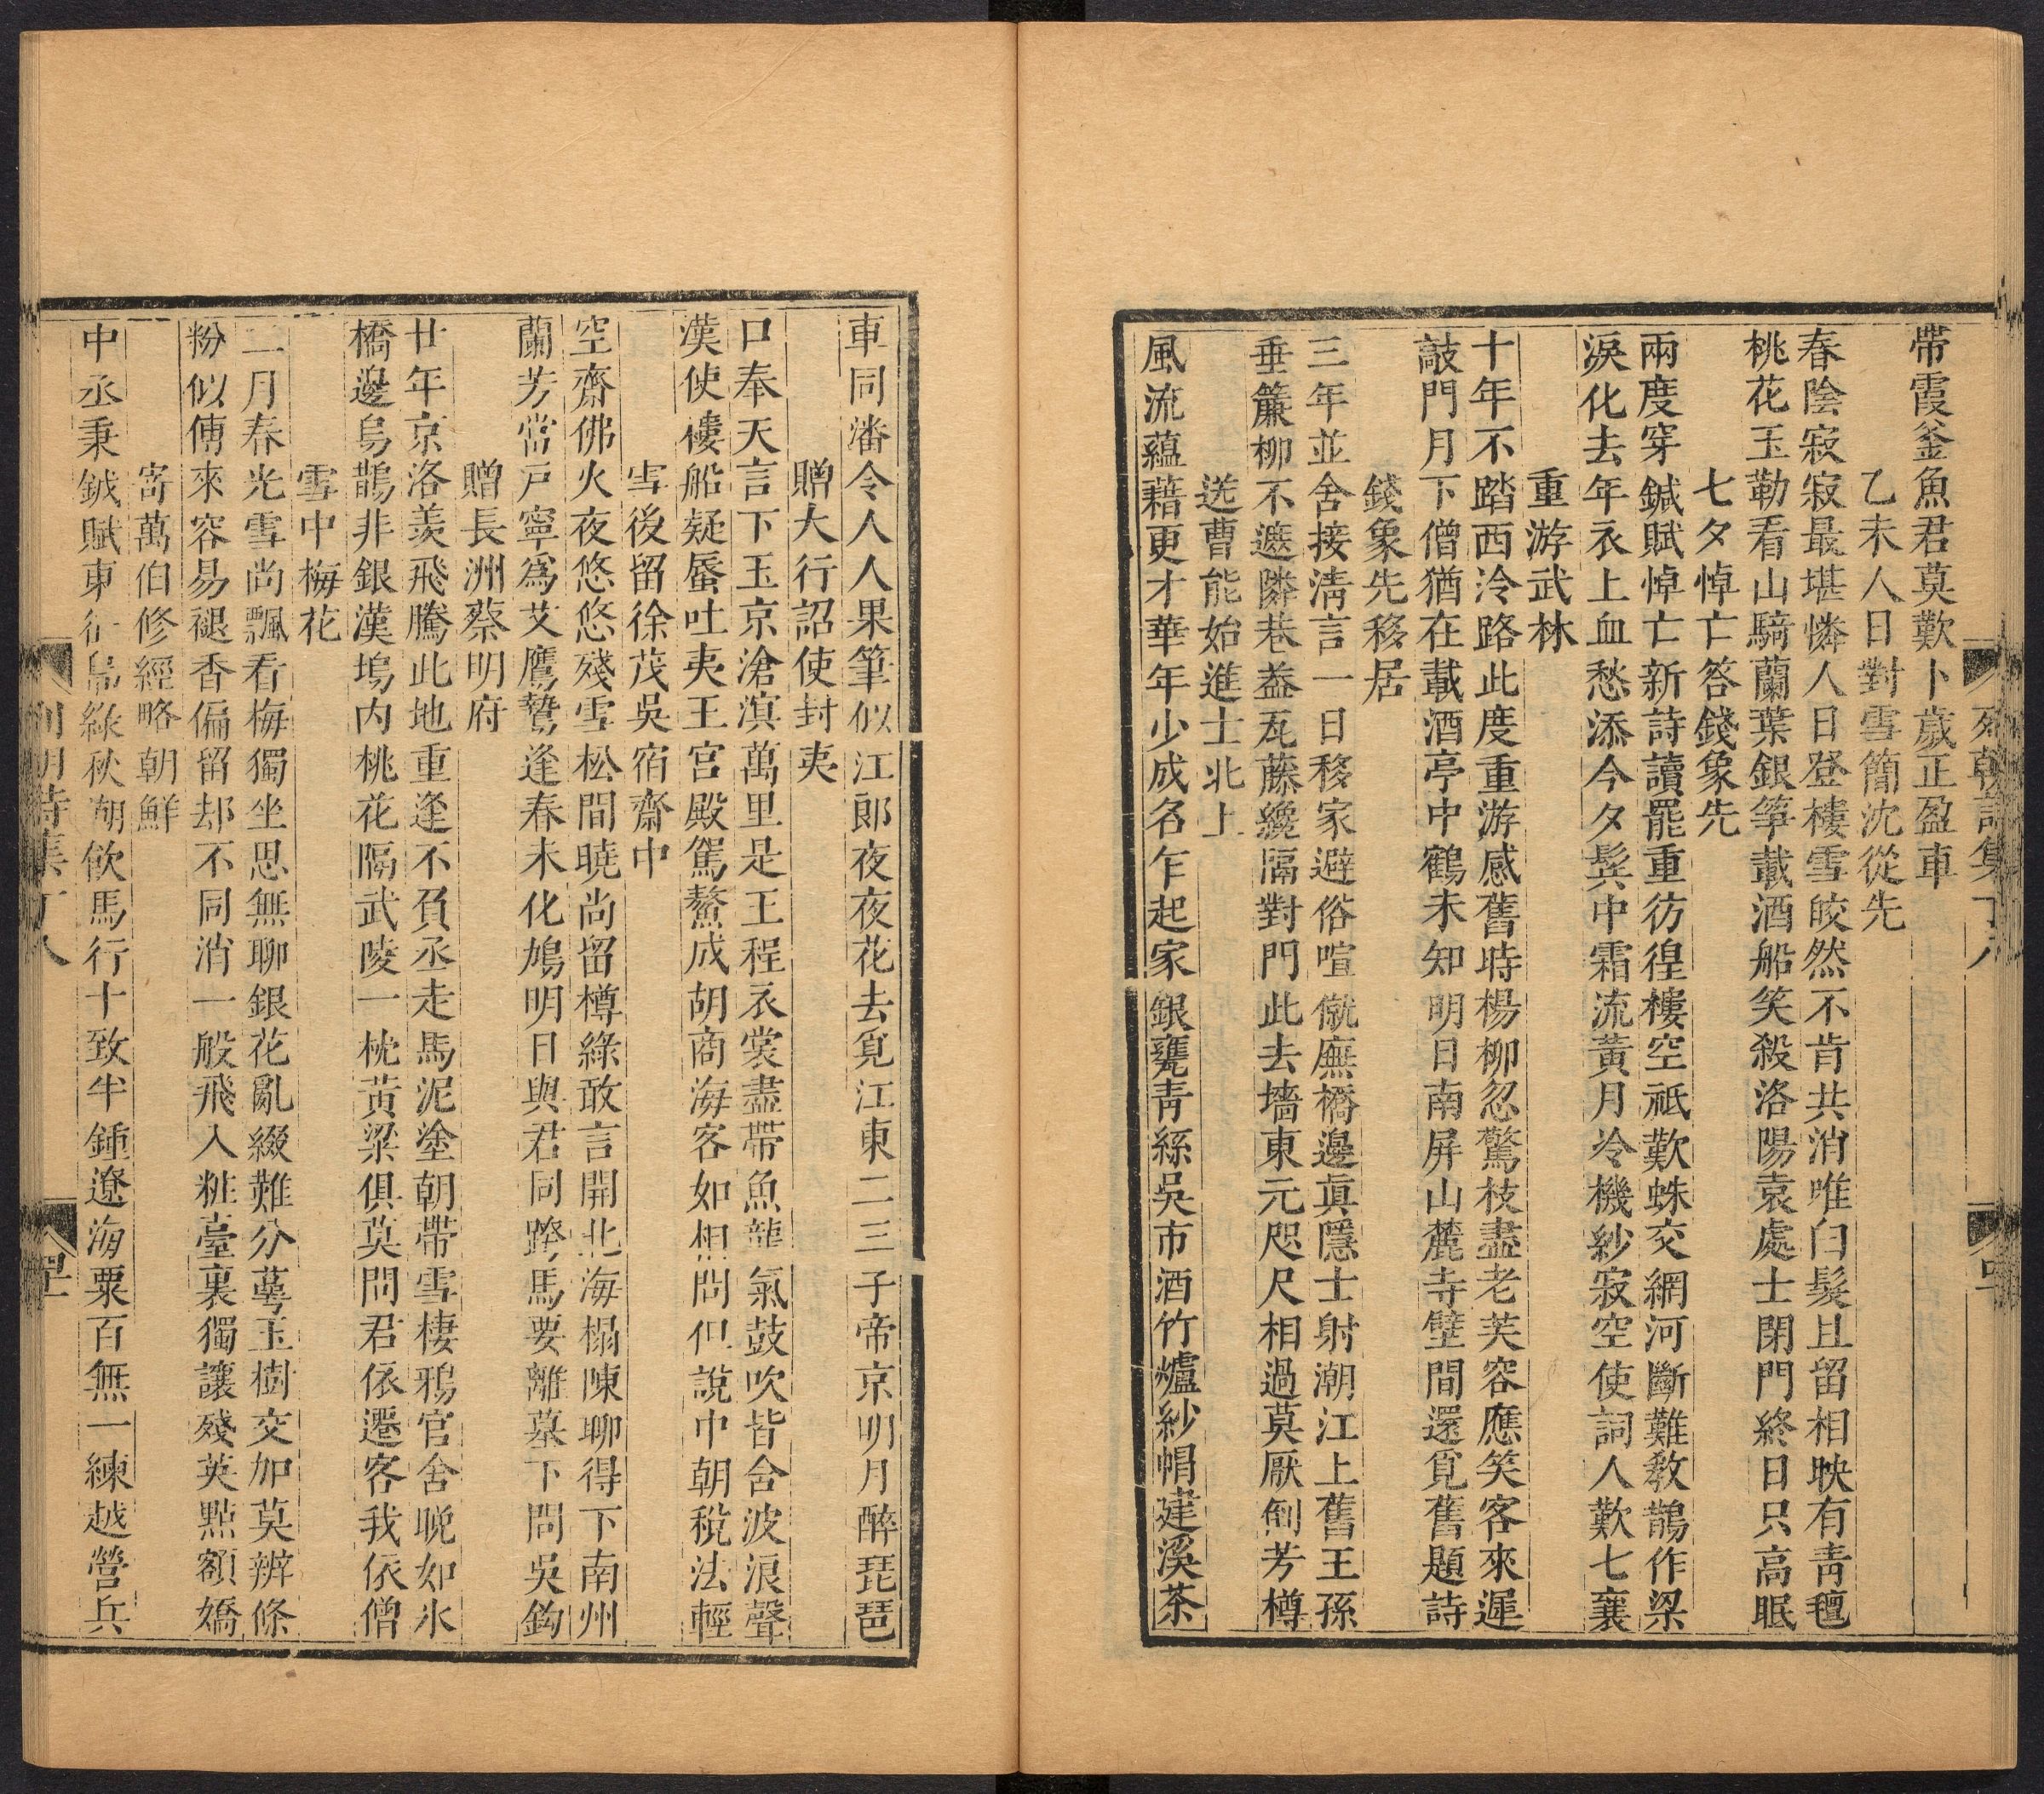 列朝詩集丁八
帶霞釜魚君莫歎卜歲正盈車
乙未人日對雪簡沈從先
春陰寂寂最堪憐人日登樓雪皎然不肯共消唯白髮且留相映有青氊
桃花玉勒看山騎蘭葉銀箏載酒船笑殺洛陽袁處士閉門終日只高眠
七夕悼亡答錢象先
兩度穿鍼賦悼亡新詩讀罷重彷徨樓空祇歎蛛交網河斷難教鵲作梁
淚化去年衣上血愁添今夕鬂中霜流黃月冷機紗寂空使詞人歎七襄
重游武林
十年不踏西泠路此度重游感舊時楊柳忽驚枝盡老芙容應笑客來遲
敲門月下僧猶在載酒亭中鶴未知明日南屏山麓寺壁間還覓舊題詩
錢象先移居
三年並舍接清言一日移家避俗喧僦廡橋邊眞隱士射潮江上舊王孫
垂簾柳不遮隣巷葢瓦藤纔隔對門此去墻東元咫尺相過莫厭倒芳樽
送曹能始進士北上
風流蘊藉更才華年少成名乍起家銀甕青絲吳市酒竹爐紗帽建溪茶
車同潘令人人果筆似江郎夜夜花去覓江東二三子帝京明月醉琵琶
贈大行詔使封夷
口奉天言下玉京滄溟萬里是王程衣裳盡帶魚龍氣鼓吹皆含波浪聲
漢使樓船疑蜃吐夷王宮殿駕鰲成胡商海客如相問但說中朝稅法輕
雪後留徐茂吳宿齋中
空齋佛火夜悠悠殘雪松間曉尚留樽綠敢言開北海榻陳聊得下南州
蘭芳當戸寧爲艾鷹鷙逢春未化鳩明日與君同蹻馬要離墓下問吳鈎
贈長洲蔡明府
廿年京洛羨飛騰此地重逢不負丞走馬泥塗朝帶雪棲鴉官舍晚如氷
橋邊烏鵲非銀漢塢內桃花隔武陵一枕黃粱俱莫問君依遷客我依僧
雪中梅花
二月春光雪尚飄看梅獨坐思無聊銀花亂綴難分萼玉樹交加莫辨條
粉似傅來容易褪香偏留却不同消一般飛入粧臺裏獨讓殘英點額嬌
寄萬伯修經略朝鮮
中丞秉鉞賦東征島綠秋湖飲馬行十致半鍾遼海粟百無一練越營兵
列朝詩集丁八